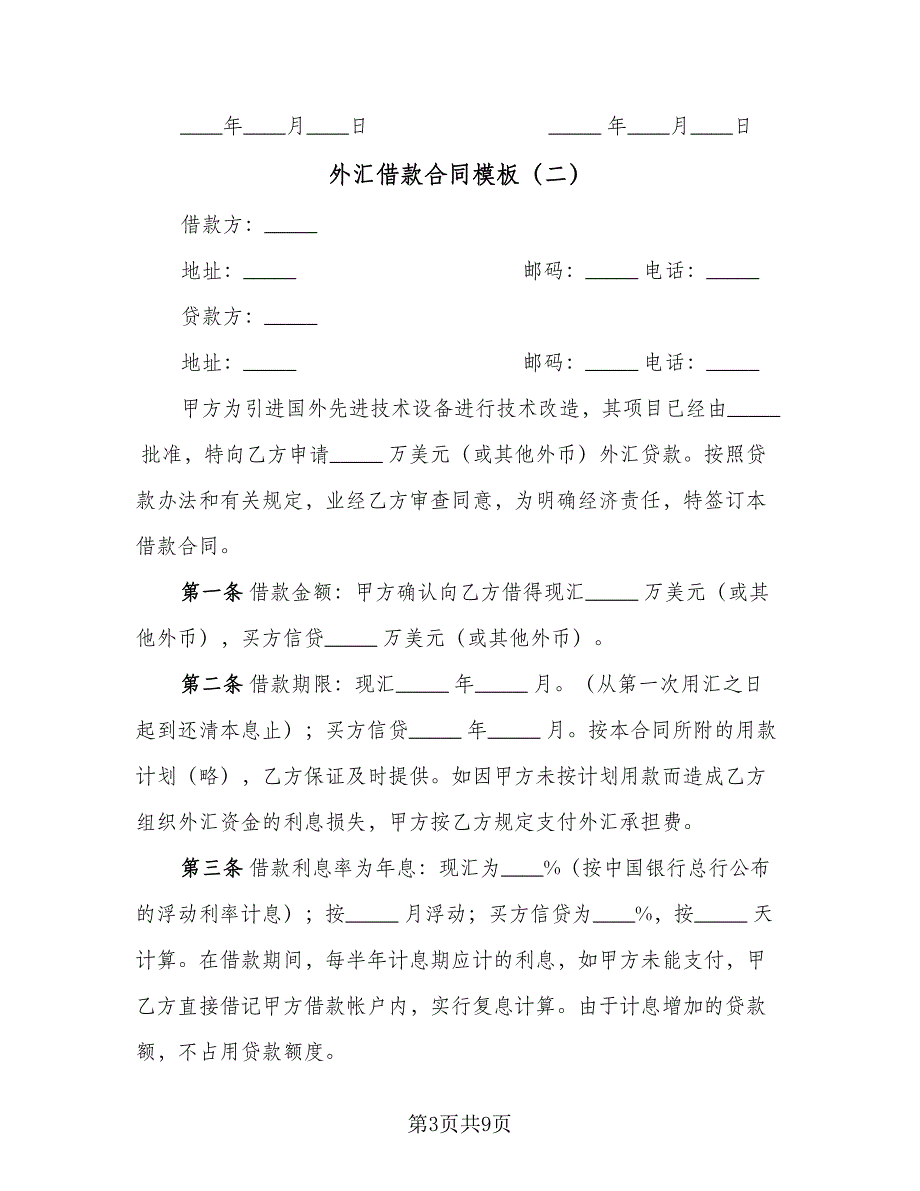 ____年____月____日 _____ 年____月____日
外汇借款合同模板（二）
借款方：_____
地址：_____ 邮码：_____ 电话：_____
贷款方：_____
地址：_____ 邮码：_____ 电话：_____
甲方为引进国外先进技术设备进行技术改造，其项目已经由_____
批准，特向乙方申请_____ 万美元（或其他外币）外汇贷款。按照贷
款办法和有关规定，业经乙方审查同意，为明确经济责任，特签订本
借款合同。
第一条 借款金额：甲方确认向乙方借得现汇_____ 万美元（或其
他外币），买方信贷_____ 万美元（或其他外币）。
第二条 借款期限：现汇_____ 年_____ 月。（从第一次用汇之日
起到还清本息止）；买方信贷_____ 年_____ 月。按本合同所附的用款
计划（略），乙方保证及时提供。如因甲方未按计划用款而造成乙方
组织外汇资金的利息损失，甲方按乙方规定支付外汇承担费。
第三条 借款利息率为年息：现汇为____%（按中国银行总行公布
的浮动利率计息）；按_____ 月浮动；买方信贷为____%，按_____ 天
计算。在借款期间，每半年计息期应计的利息，如甲方未能支付，甲
乙方直接借记甲方借款帐户内，实行复息计算。由于计息增加的贷款
额，不占用贷款额度。
第3页共9页